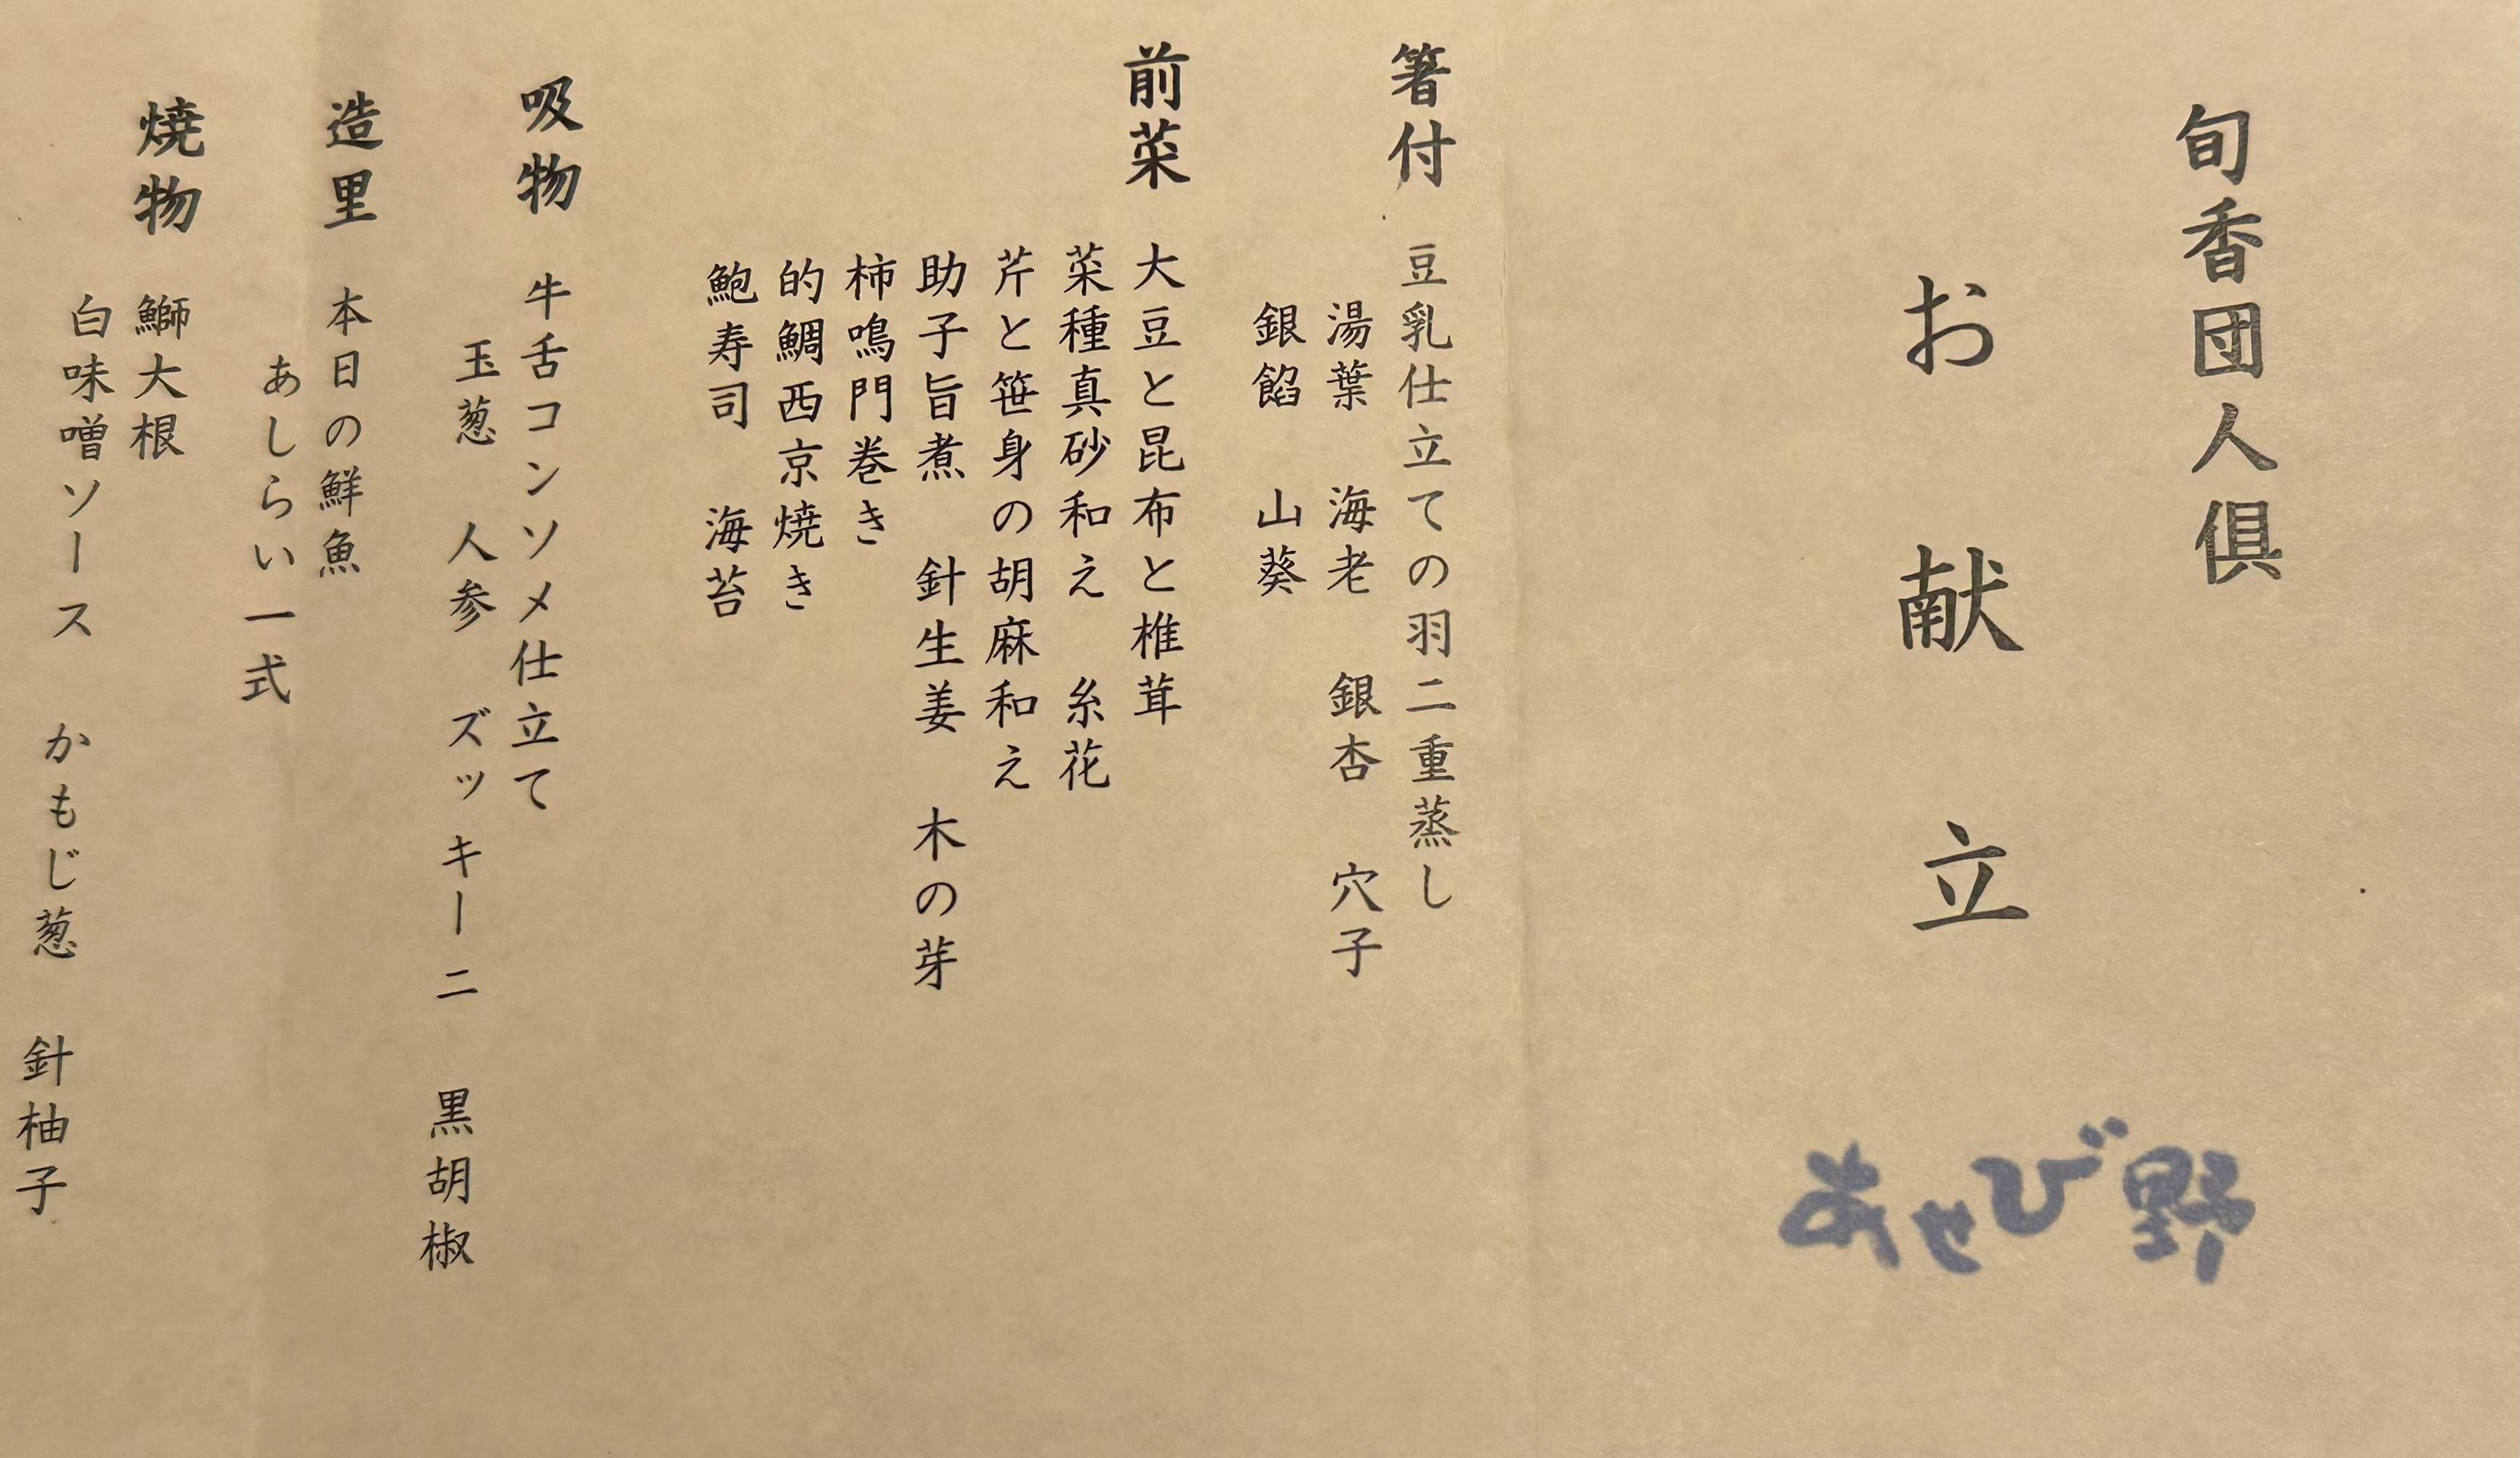 旬香団人倶
お献立
あせび野
箸付
豆乳仕立ての羽二重蒸し
湯葉 海老 銀杏 穴子
銀餡 山葵
前菜
大豆と昆布と椎茸
菜種真砂和え 糸花
芹と笹身の胡麻和え
助子旨煮 針生姜 木の芽
柿鳴門巻き
的鯛西京焼き
鮑寿司 海苔
吸物
牛舌コンソメ仕立て
玉葱 人参 ズッキーニ 黒胡椒
造里
本日の鮮魚
あしらい一式
焼物
鰤大根
白味噌ソース かもじ葱 針柚子